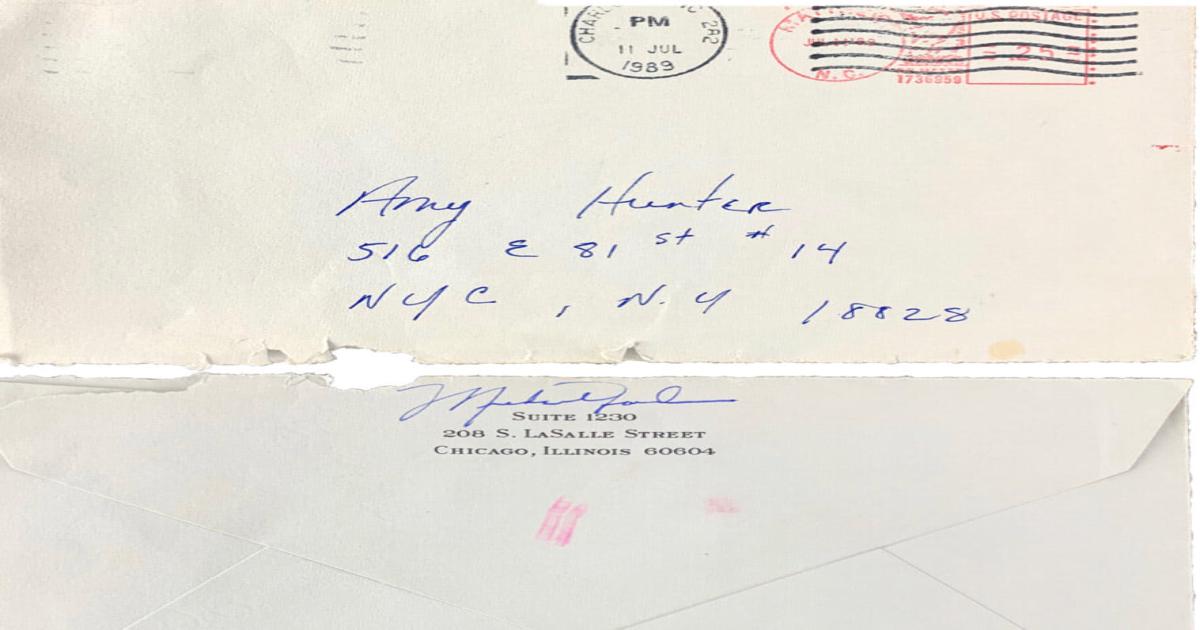 PM
11 JUL
1989
282
U.S. POSTAGE
.25
N.C.
1736959
Amy Hunter
516 E 81 st # 14
NYC, N.Y 18828
SUITE 1230
208 S. LASALLE STREET
CHICAGO, ILLINOIS 60604